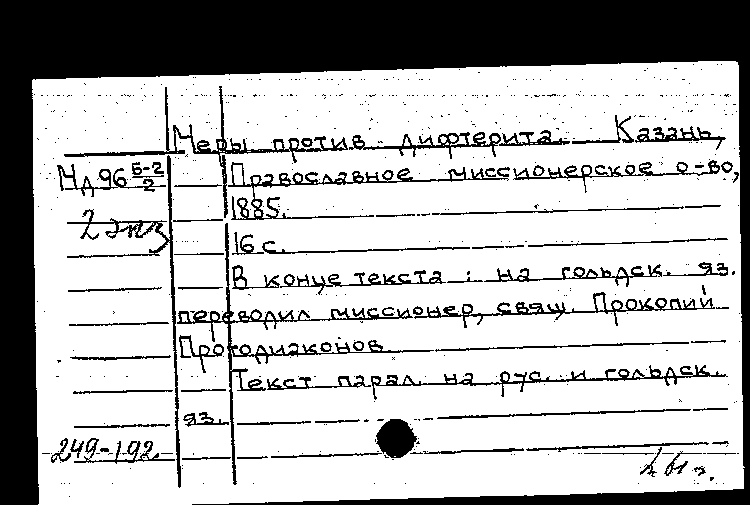 Меры против дифтерита. Казань,
Нд 96 Б-2/2
Православное миссионерское о-во,
1885.
2 экз
16 с.
В конце текста: на гольдск. яз.
переводил миссионер, свящ. Прокопий
Протодиаконов.
Текст парал. на рус. и гольдск.
яз.
249-192.